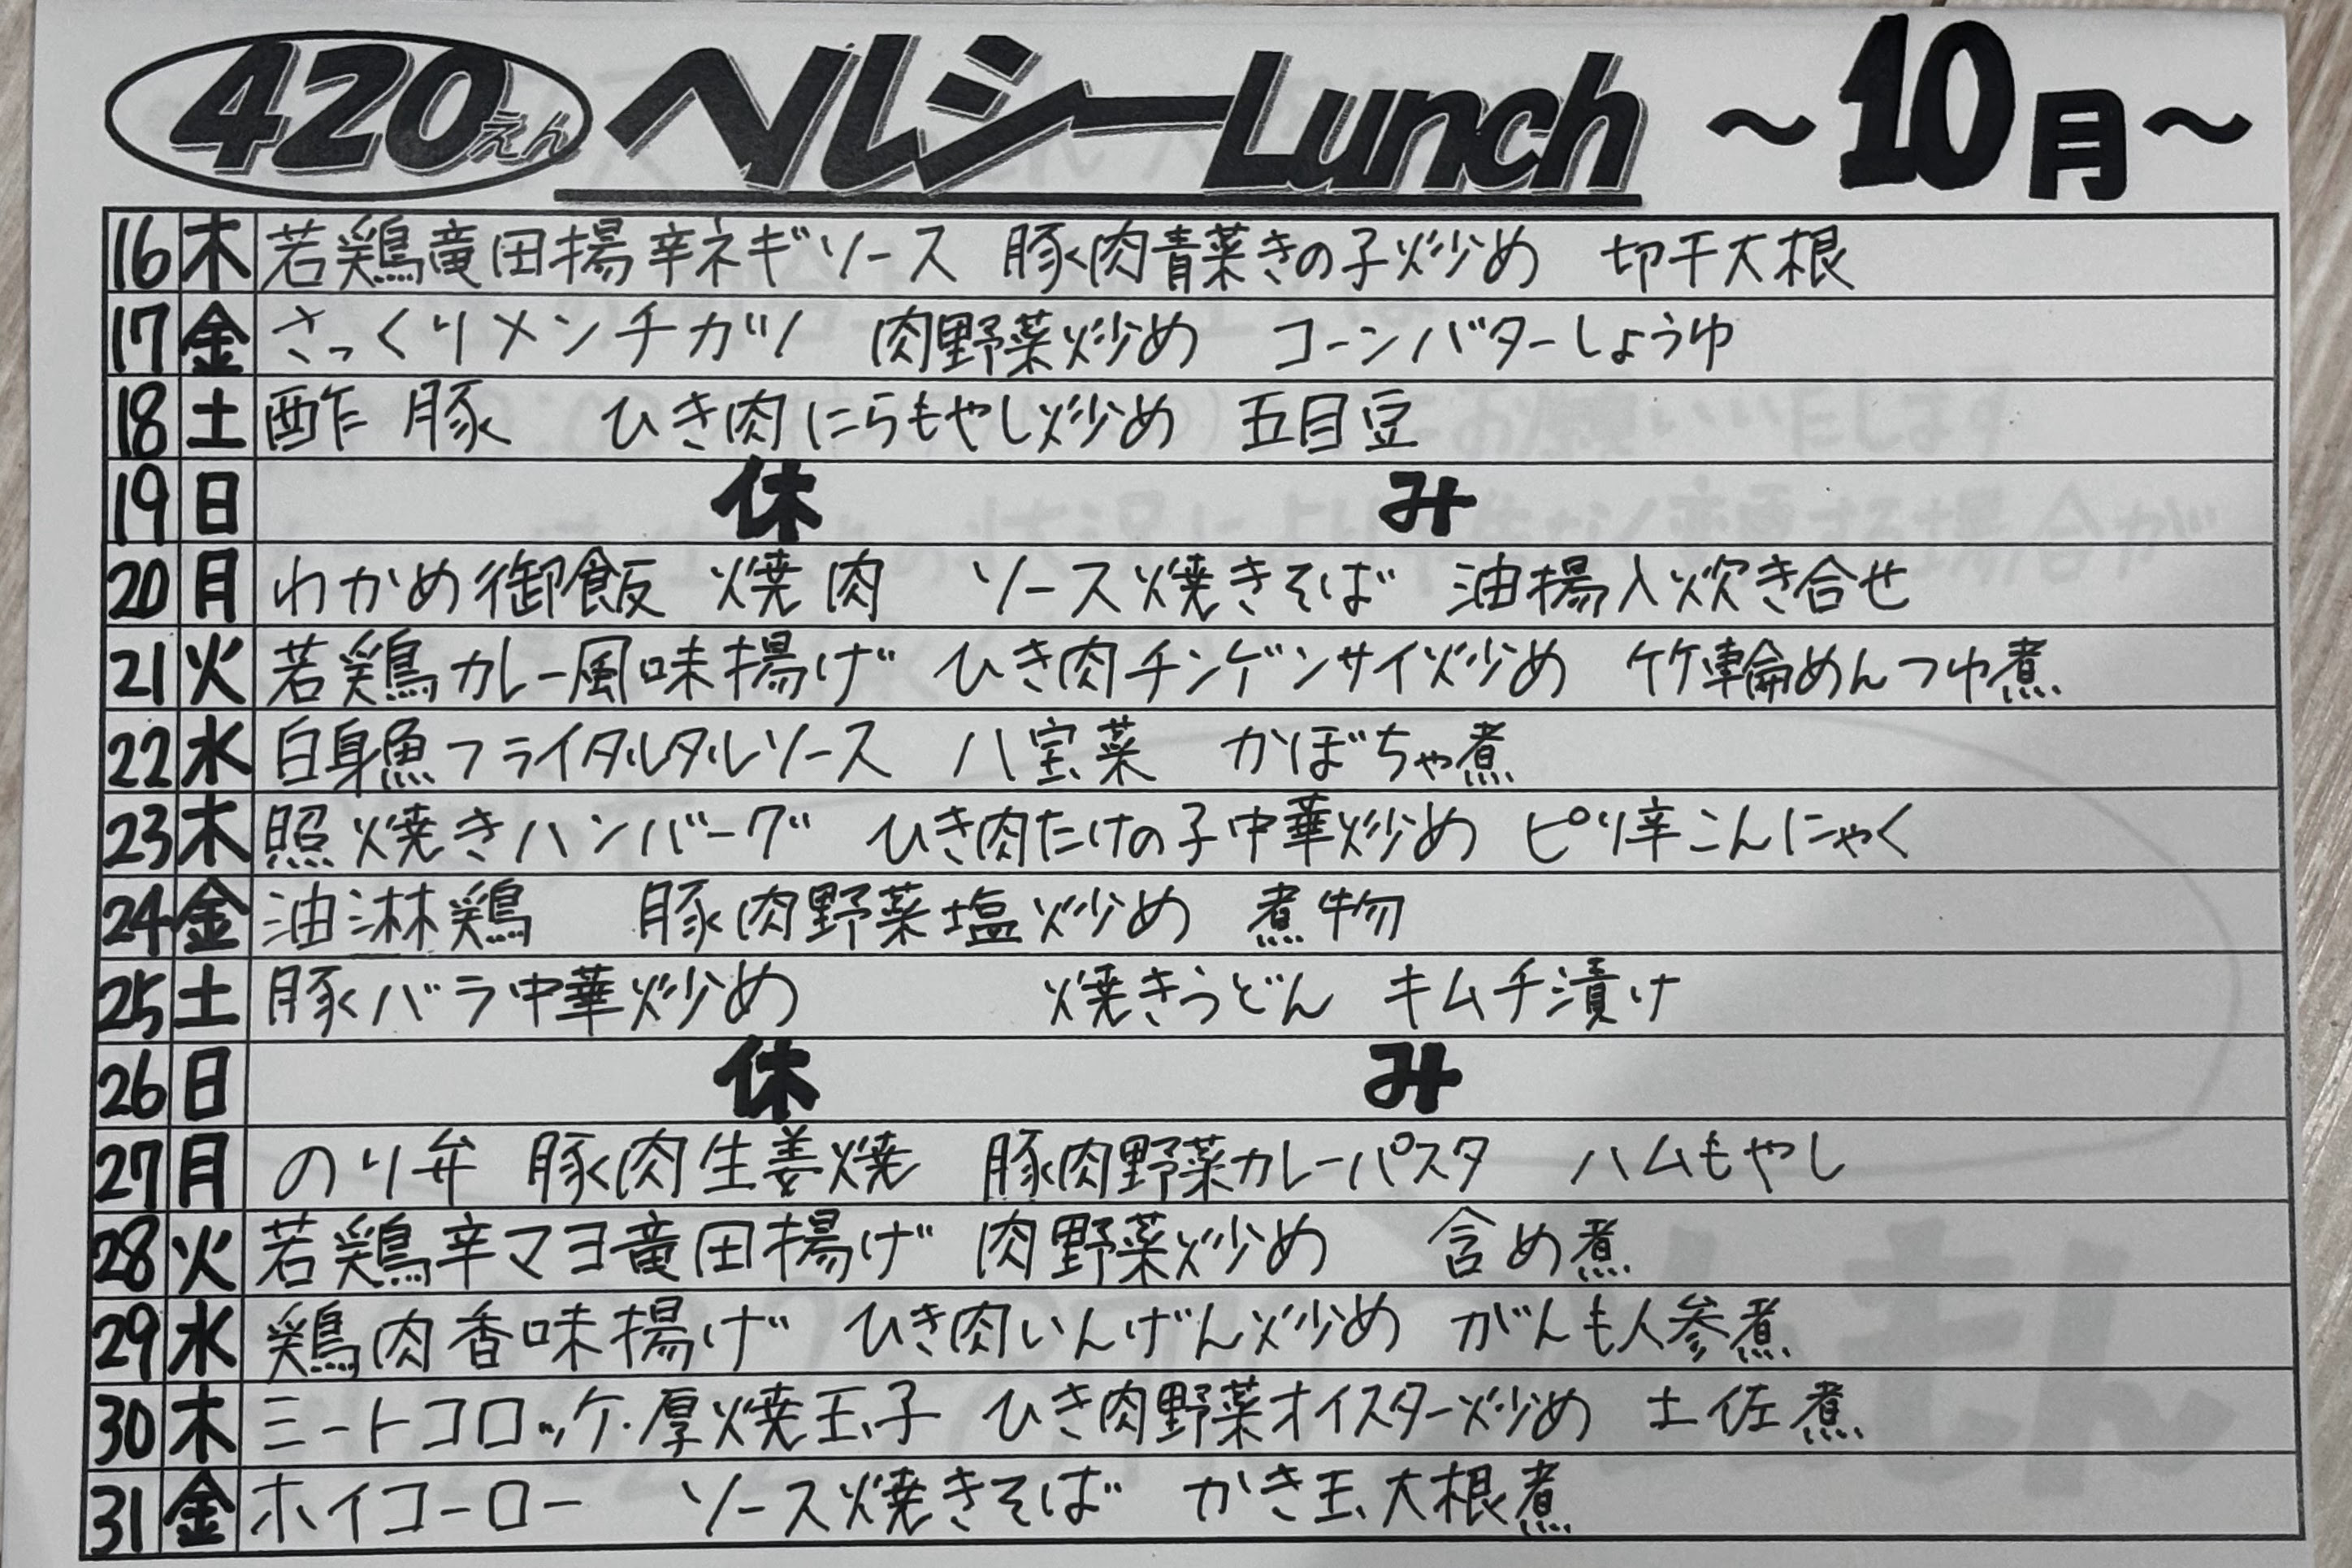 420えん ヘルシーLunch ～10月～
16 木 若鶏竜田揚辛ネギソース 豚肉青菜きの子炒め 切干大根
17 金 さっくりメンチカツ 肉野菜炒め コーンバターしょうゆ
18 土 酢豚 ひき肉にらもやし炒め 五目豆
19 日 休み
20 月 わかめ御飯 焼肉 ソース焼きそば 油揚入炊き合せ
21 火 若鶏カレー風味揚げ ひき肉チンゲンサイ炒め 竹輪めんつゆ煮
22 水 白身魚フライタルタルソース 八宝菜 かぼちゃ煮
23 木 照焼きハンバーグ ひき肉たけの子中華炒め ピリ辛こんにゃく
24 金 油淋鶏 豚肉野菜塩炒め 煮物
25 土 豚バラ中華炒め 焼きうどん キムチ漬け
26 日 休み
27 月 のり弁 豚肉生姜焼 豚肉野菜カレーパスタ ハムもやし
28 火 若鶏辛マヨ竜田揚げ 肉野菜炒め 含め煮
29 水 鶏肉香味揚げ ひき肉いんげん炒め がんも人参煮
30 木 ミートコロッケ・厚焼玉子 ひき肉野菜オイスター炒め 土佐煮
31 金 ホイコーロー ソース焼きそば かき玉大根煮